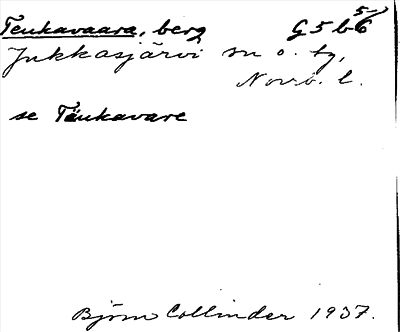 Teukavaara, berg G5b5-6
Jukkasjärvi sn o. tg,
Norrb. l.
se Täukavare
Björn Collinder 1937.